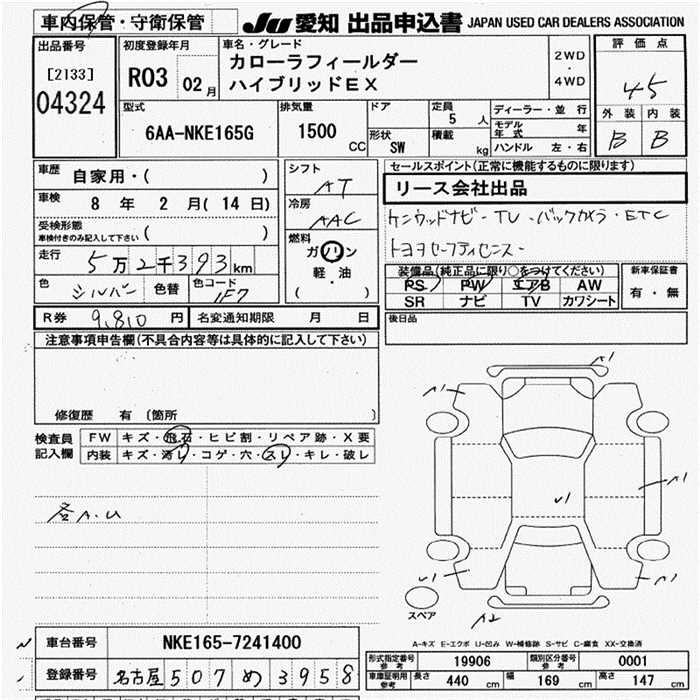 車内保管・守衛保管
JU 愛知 出品申込書 JAPAN USED CAR DEALERS ASSOCIATION
出品番号
[2133]
04324
初度登録年月
R03 02月
車名・グレード
カローラフィールダー
ハイブリッドEX
2WD
・
4WD
評価点
4.5
外装 内装
B B
型式
6AA-NKE165G
排気量
1500 CC
ドア
形状 SW
定員 5 人
積載 kg
ディーラー・並行
モデル年式 年
ハンドル 左・右
車歴 自家用・( )
車検 8 年 2 月( 14 日)
受検形態
車検付きのみ記入して下さい ( )
走行 5万2千393km
色 シルバー 色替 色コード 1F7
シフト
AT
冷房
AAC
燃料
ガソリン
軽・油
( )
セールスポイント(正常に機能するものに限ります)
リース会社出品
ケンウッドナビ-TV-バックカメラ-ETC
トヨタセーフティセンス-
装備品(純正品に限り○をつけてください)
PS PW エアB AW
SR ナビ TV カワシート
新車保証書
有・無
R券 9,810 円 名変通知期限 月 日
後日品
注意事項申告欄(不具合内容等は具体的に記入して下さい)
修復歴 有 〔箇所 〕
検査員記入欄
FW キズ・飛石・ヒビ割・リペア跡・X要
内装 キズ・汚レ・コゲ・穴・スレ・キレ・破レ
各A.U
A1
A1
A1
U1
U1
A1
A2
スペア
A-キズ E-エクボ U-凹み W-補修跡 S-サビ C-腐食 XX-交換済
車台番号 NKE165-7241400
登録番号 名古屋 507 め 3958
形式指定番号 参考 19906 類別区分番号 参考 0001
車庫証明用 参考 長さ 440 cm 幅 169 cm 高さ 147 cm